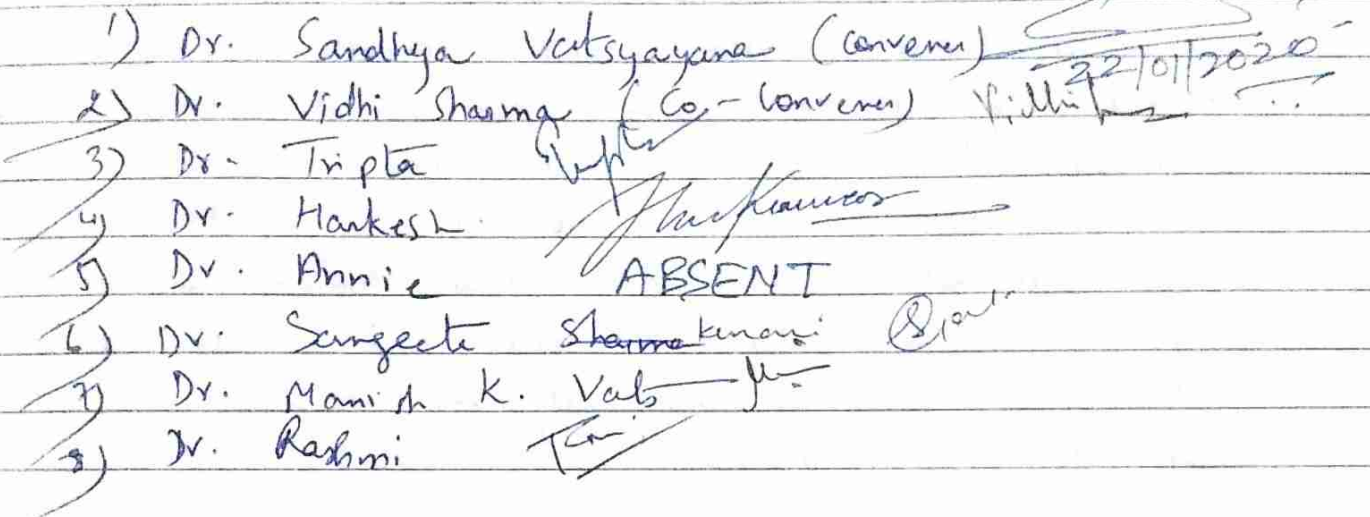 1) Dr. Sandhya Vatsyayana (Convener)
22/01/2020
2) Dr. Vidhi Sharma (Co-Convener) Vidhi
3) Dr. Tripta Tripta
4) Dr. Harkesh
5) Dr. Annie ABSENT
6) Dr. Sangeeta Sharma Kumari
7) Dr. Manish K. Vats
8) Dr. Rashmi